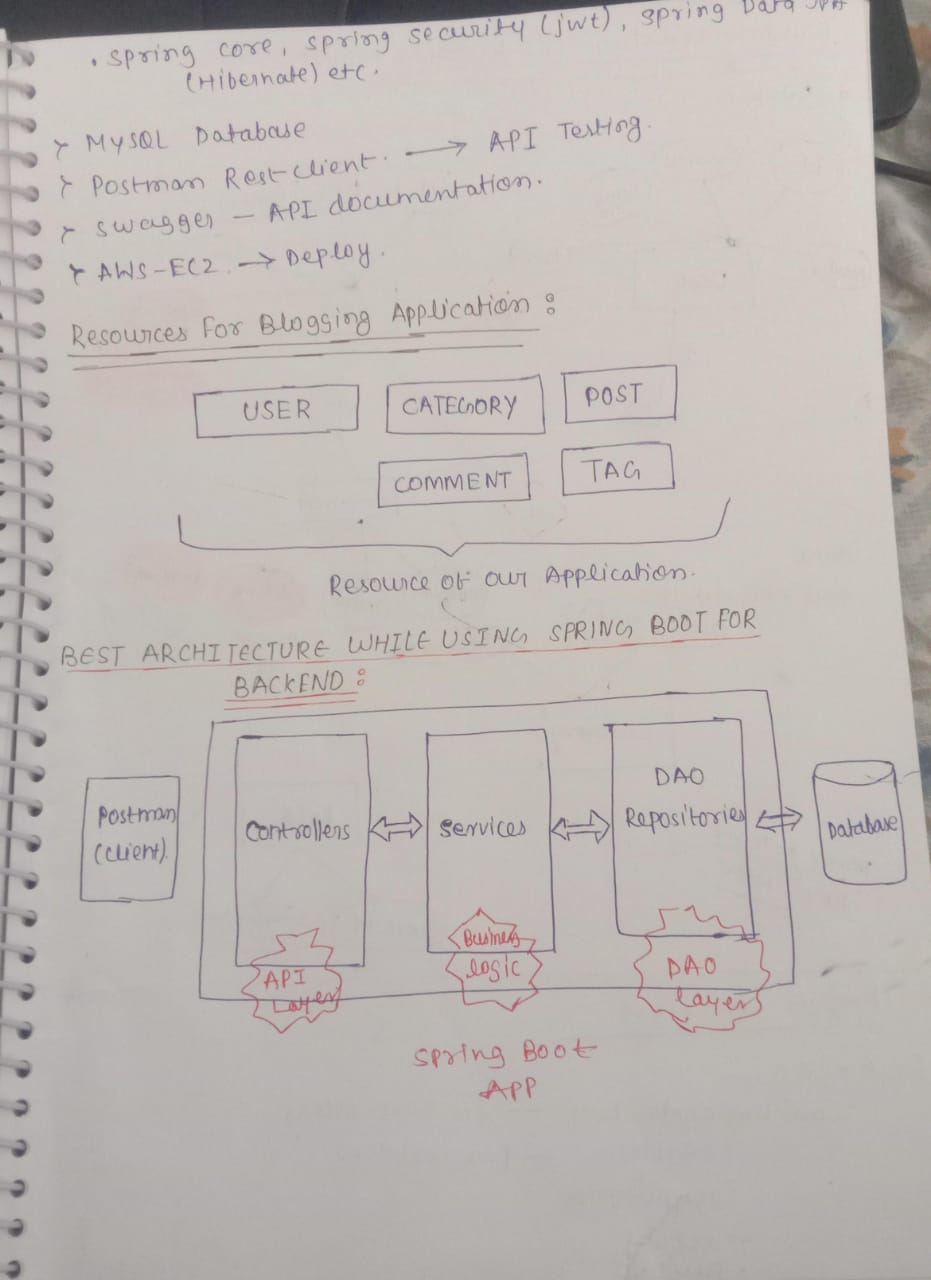 . Spring core, spring security (jwt), spring Data JPA
(Hibernate) etc.
MySQL Database
Postman Rest client. → API Testing.
Swagger – API documentation.
AWS-EC2 → Deploy.
Resources For Blogging Application :
USER
CATEGORY
POST
COMMENT
TAG
Resource of our Application.
BEST ARCHITECTURE WHILE USING SPRING BOOT FOR
BACKEND :
Postman
(client).
Controllers
Services
DAO
Repositories
Database
API
Layer
Business
logic
DAO
layer
Spring Boot
APP